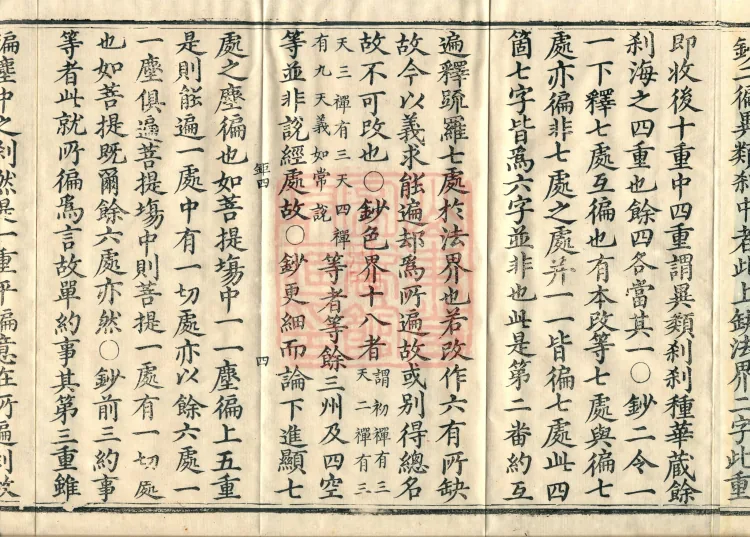 鈔二徧異類刹中者此上缺法界二字此重
即收後十重中四重謂異類刹刹種華蔵餘
刹海之四重也餘四各當其一○鈔二令一
一下釋七處互徧也有本改等七處與徧七
處亦徧非七處之處并一一皆徧七處此四
箇七字皆爲六字並非也此是第二番約互
遍釋疏羅七處於法界也若改作六有所缺
故今以義求能遍却爲所遍故或别得總名
故不可改也○鈔色界十八者謂初禪有三
天二禪有三
天三禪有三天四禪
有九天義如常說
等者等餘三州及四空
等並非說經處故○鈔更細而論下進顯七
鉅四 四
處之塵徧也如菩提塲中一一塵徧上五重
是則能遍一處中有一切處亦以餘六處一
一塵俱遍菩提塲中則菩提一處有一切處
也如菩提既爾餘六處亦然○鈔前三約事
等者此就所徧爲言故單約事其第三重雖
徧塵中之刹然是一重平徧意在所遍刹故